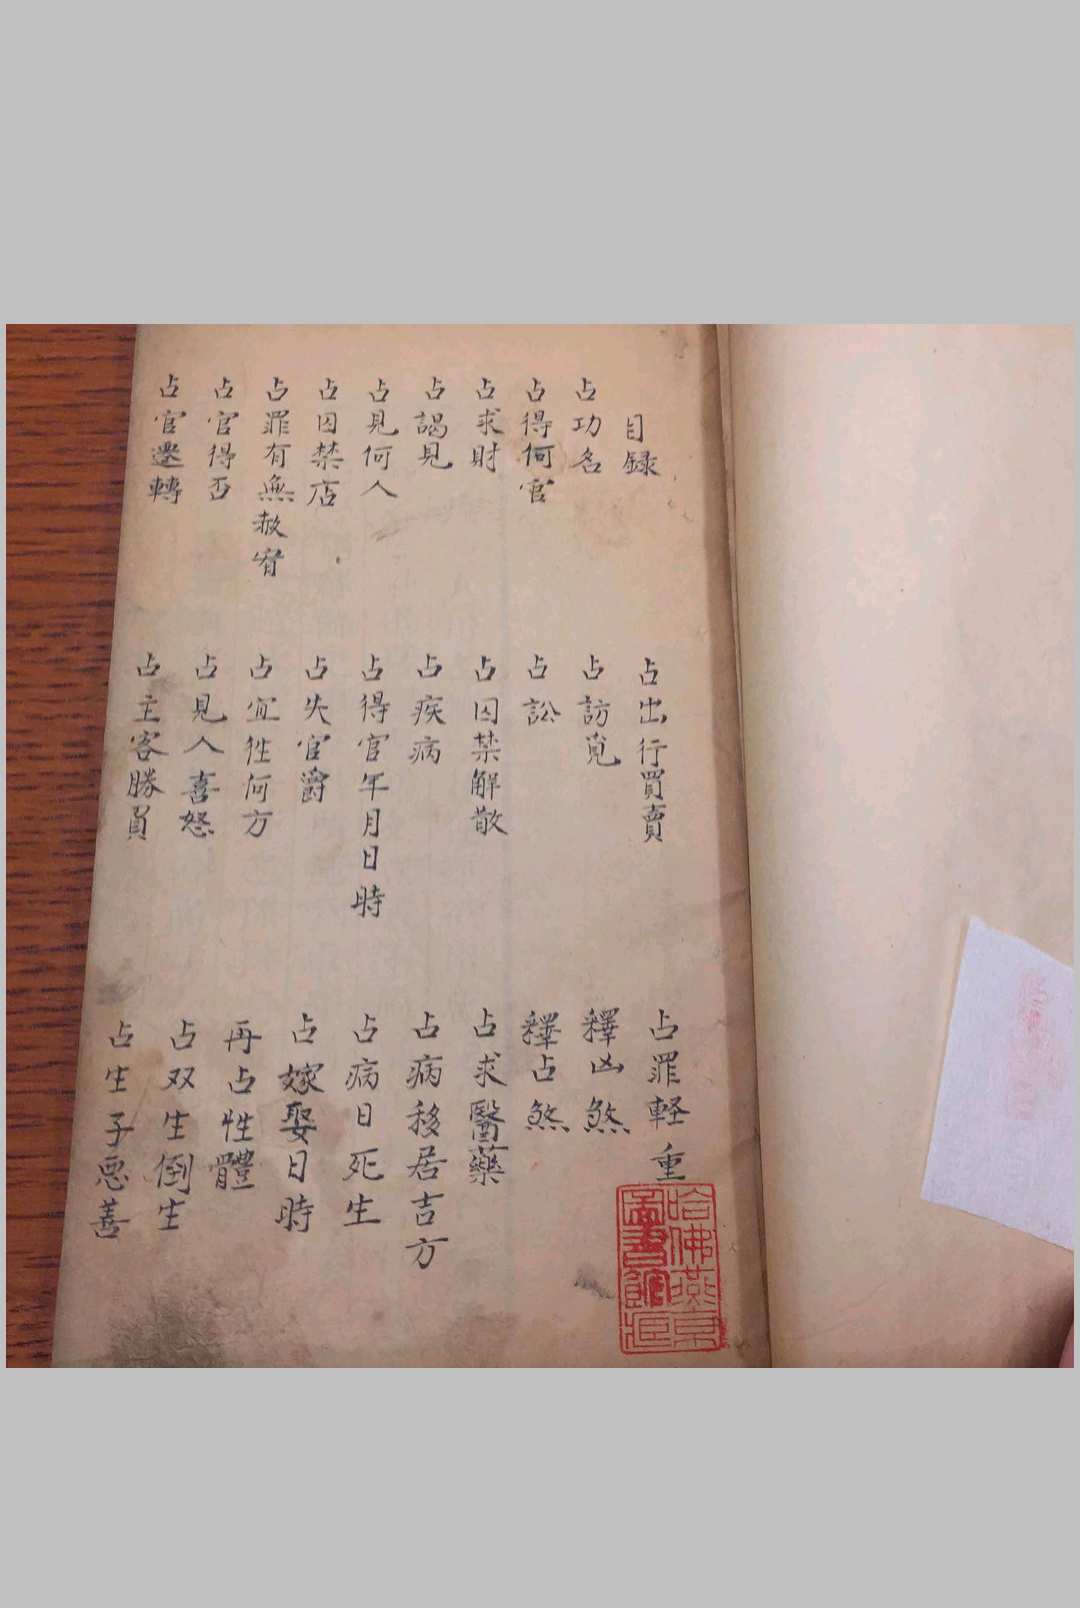 目録
占功名
占得何官
占求財
占謁見
占見何人
占囚禁店
占罪有無赦宥
占官得否
占官遷轉
占出行買賣
占訪覓
占訟
占囚禁解散
占疾病
占得官年月日時
占失官爵
占宜徃何方
占見人喜怒
占主客勝負
占罪軽重
釋凶煞
釋占煞
占求醫藥
占病移居吉方
占病日死生
占嫁娶日時
再占性體
占双生倒生
占生子惡善
哈佛燕京
圖書館